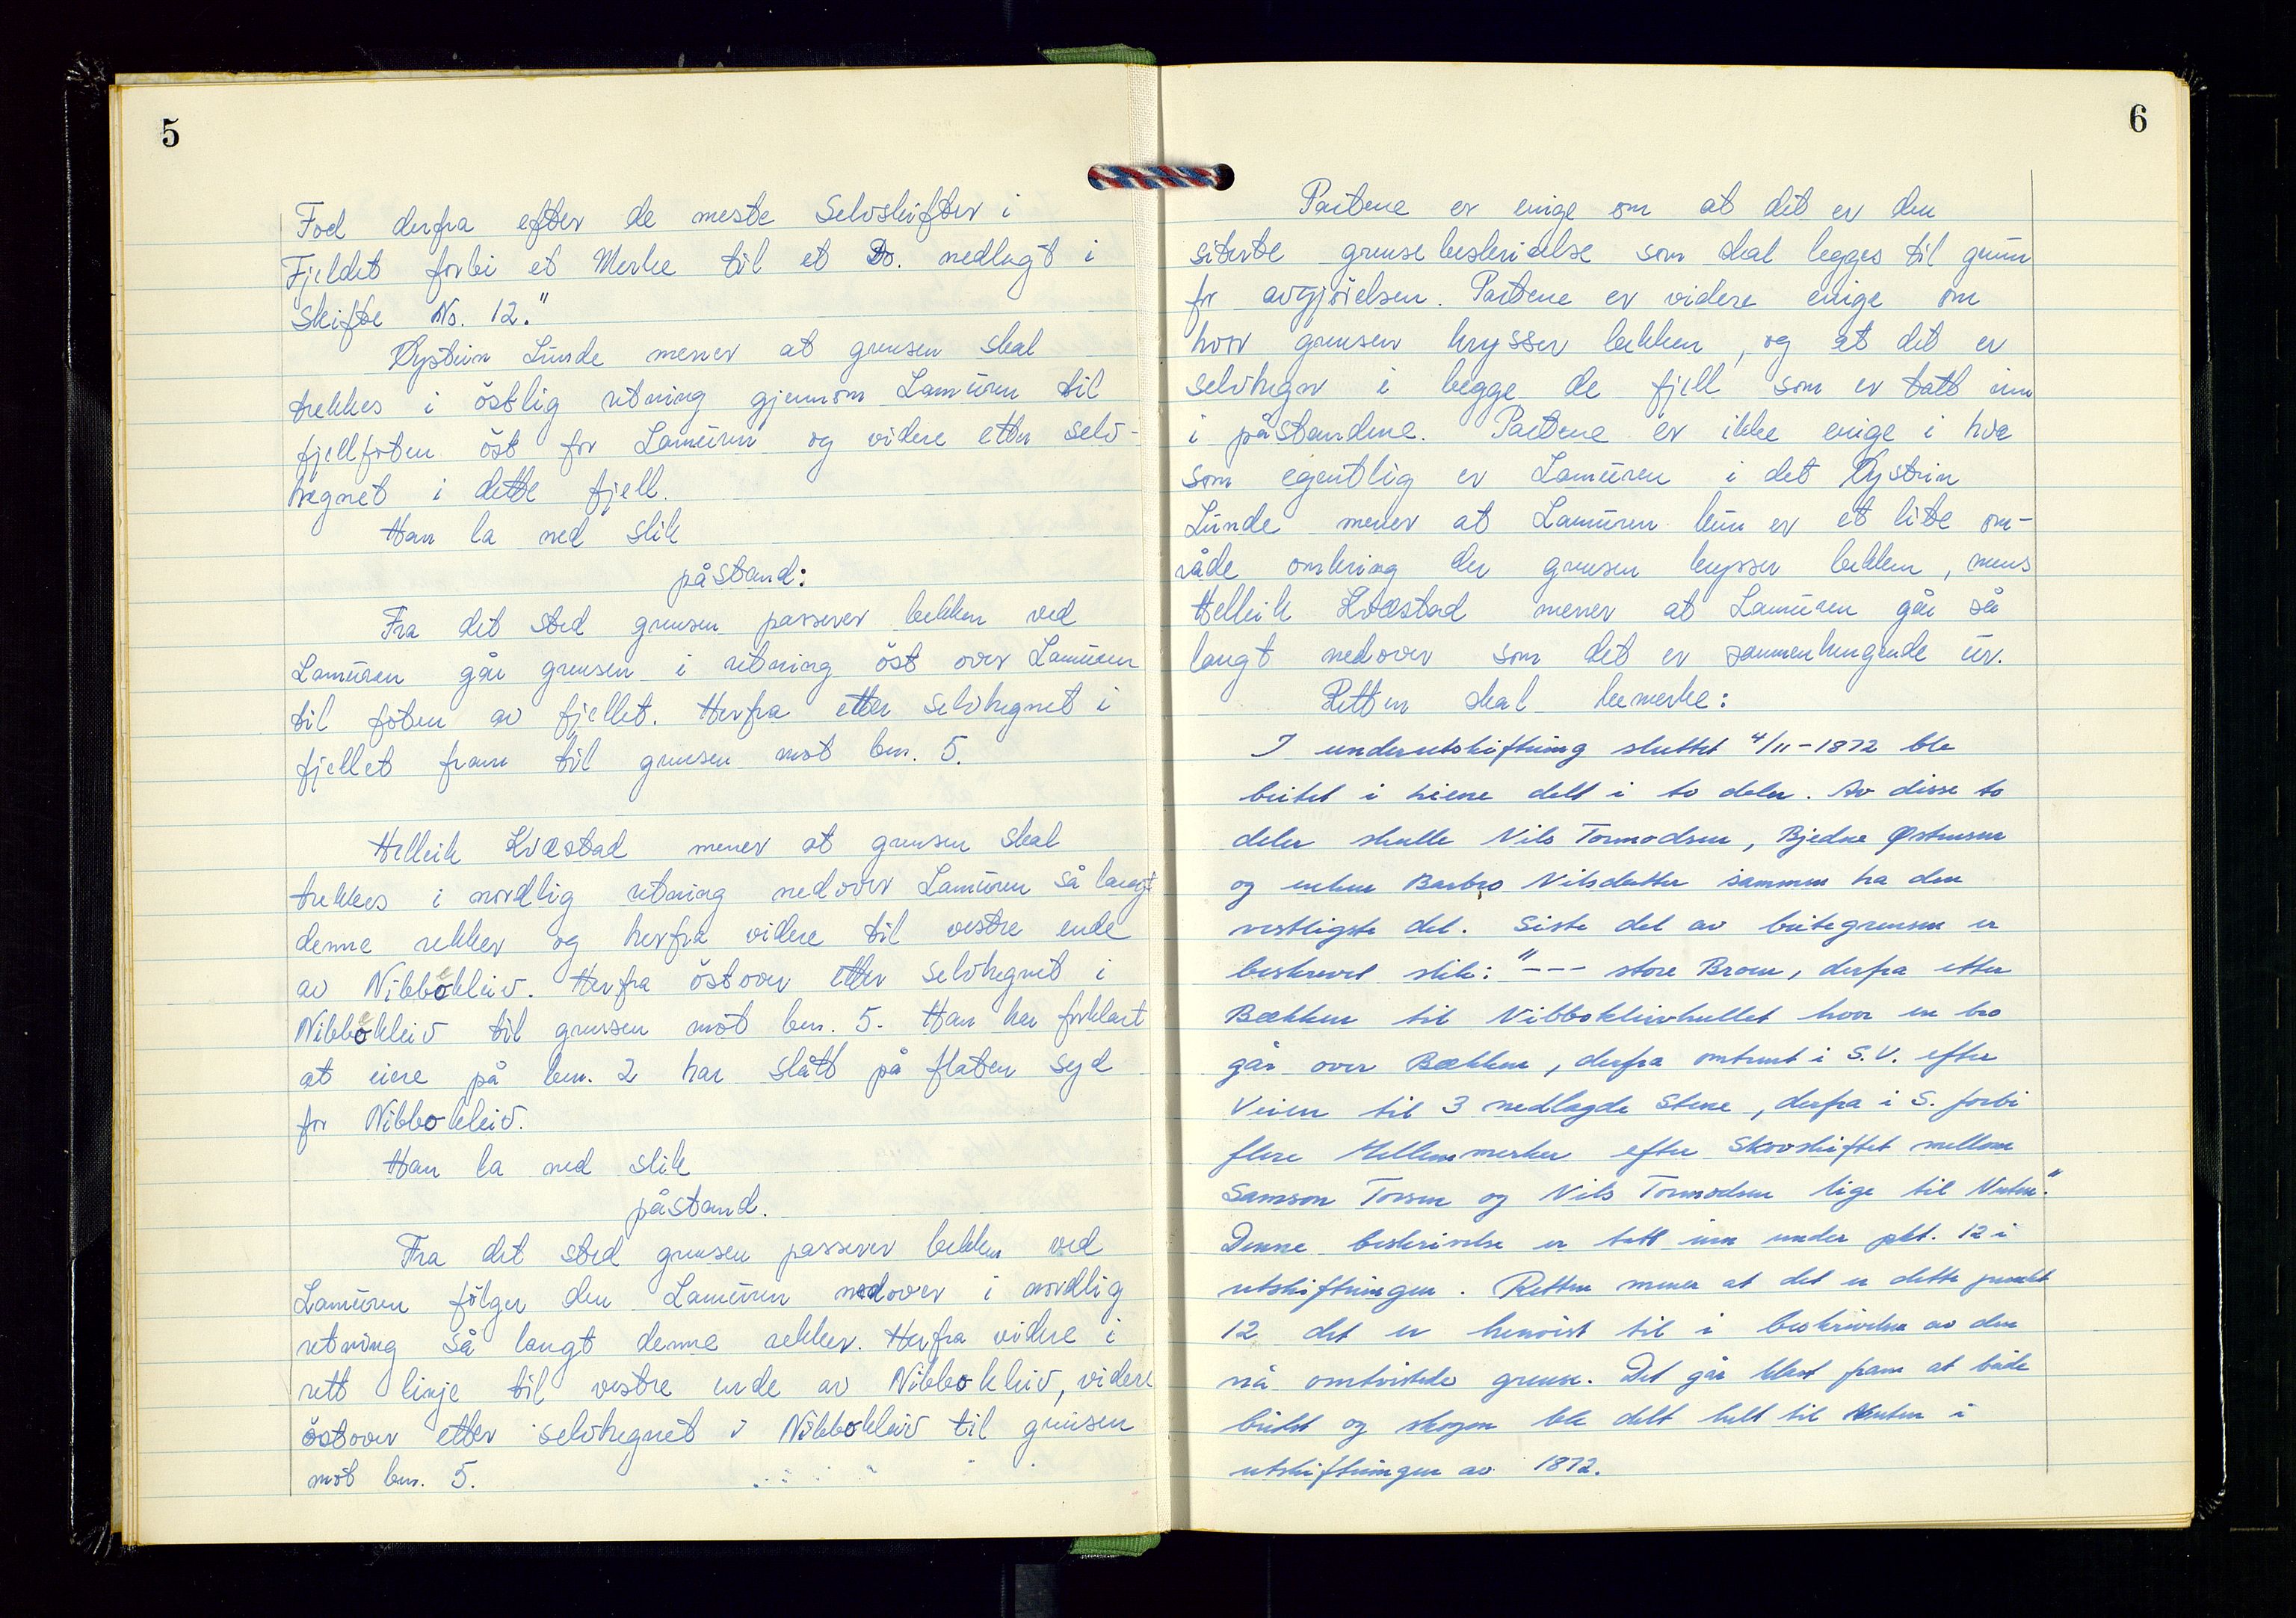 5
Fod derfra efter de meste Selvskifter i
Fjeldet forbi et Merke til et Do. nedlagt i
Skifte No. 12."
Øystein Lunde mener at grensen skal
trekkes i östlig retning gjennom Lamüren til
fjellfoten öst for Lamüren og videre etter selv-
hegnet i dette fjell.
Han la ned slik
påstand:
Fra det sted grensen passerer bekken ved
Lamüren går grensen i retning öst over Lamüren
til foten av fjellet. Herfra etter selvhegnet i
fjellet fram til grensen mot bnr. 5.
Helleik Kvæstad mener at grensen skal
trekkes i nordlig retning nedover Lamüren så langt
denne rekker og herfra videre til vestre ende
av Nibbokleiv. Herfra östover etter selvhegnet i
Nibbokleiv til grensen mot bnr. 5. Han har forklart
at eiere på bnr. 2 har slått på flaten syd
for Nibbokleiv.
Han la ned slik
påstand.
Fra det sted grensen passerer bekken ved
Lamüren fölger den Lamüren nedover i nordlig
retning så langt denne rekker. Herfra videre i
rett linje til vestre ende av Nibbokleiv, videre
östover etter selvhegnet i Nibbokleiv til grensen
mot bnr. 5.
6
Partene er enige om at det er den
siterte grensebeskrivelse som skal legges til grunn
for avgjörelsen. Partene er videre enige om
hvor grensen krysser bekken, og at det er
selvhegn i begge de fjell som er tatt inn
i påstandene. Partene er ikke enige i hva
som egentlig er Lamüren i det Øystein
Lunde mener at Lamüren kun er et lite om-
råde omkring der grensen krysser bekken, mens
Helleik Kvæstad mener at Lamüren går så
langt nedover som det er sammenhengende ür.
Retten skal bemerke:
I underutskiftning sluttet 4/11-1872 ble
beitet i heiene delt i to deler. Av disse to
deler skulle Nils Tormodsen, Bjedne Østensen
og enken Barbro Nilsdatter sammen ha den
vestligste del. Siste del av beitegrensen er
beskrevet slik: "--- store Broen, derfra etter
Bækken til Nibbokleivhullet hvor en bro
går over Bækken, derfra omtrent i S.V. efter
Veien til 3 nedlagde Stene, derfra i S. forbi
flere Mellemmerker efter Skovskiftet mellom
Samson Torsen og Nils Tormodsen lige til Nuten."
Denne beskrivelse er tatt inn under pkt. 12 i
utskiftningen. Retten mener at det er dette punkt
12 det er henvist til i beskrivelsen av den
nå omtvistede grense. Det går klart fram at både
beitet og skogen ble delt helt til Nuten i
utskiftningen av 1872.